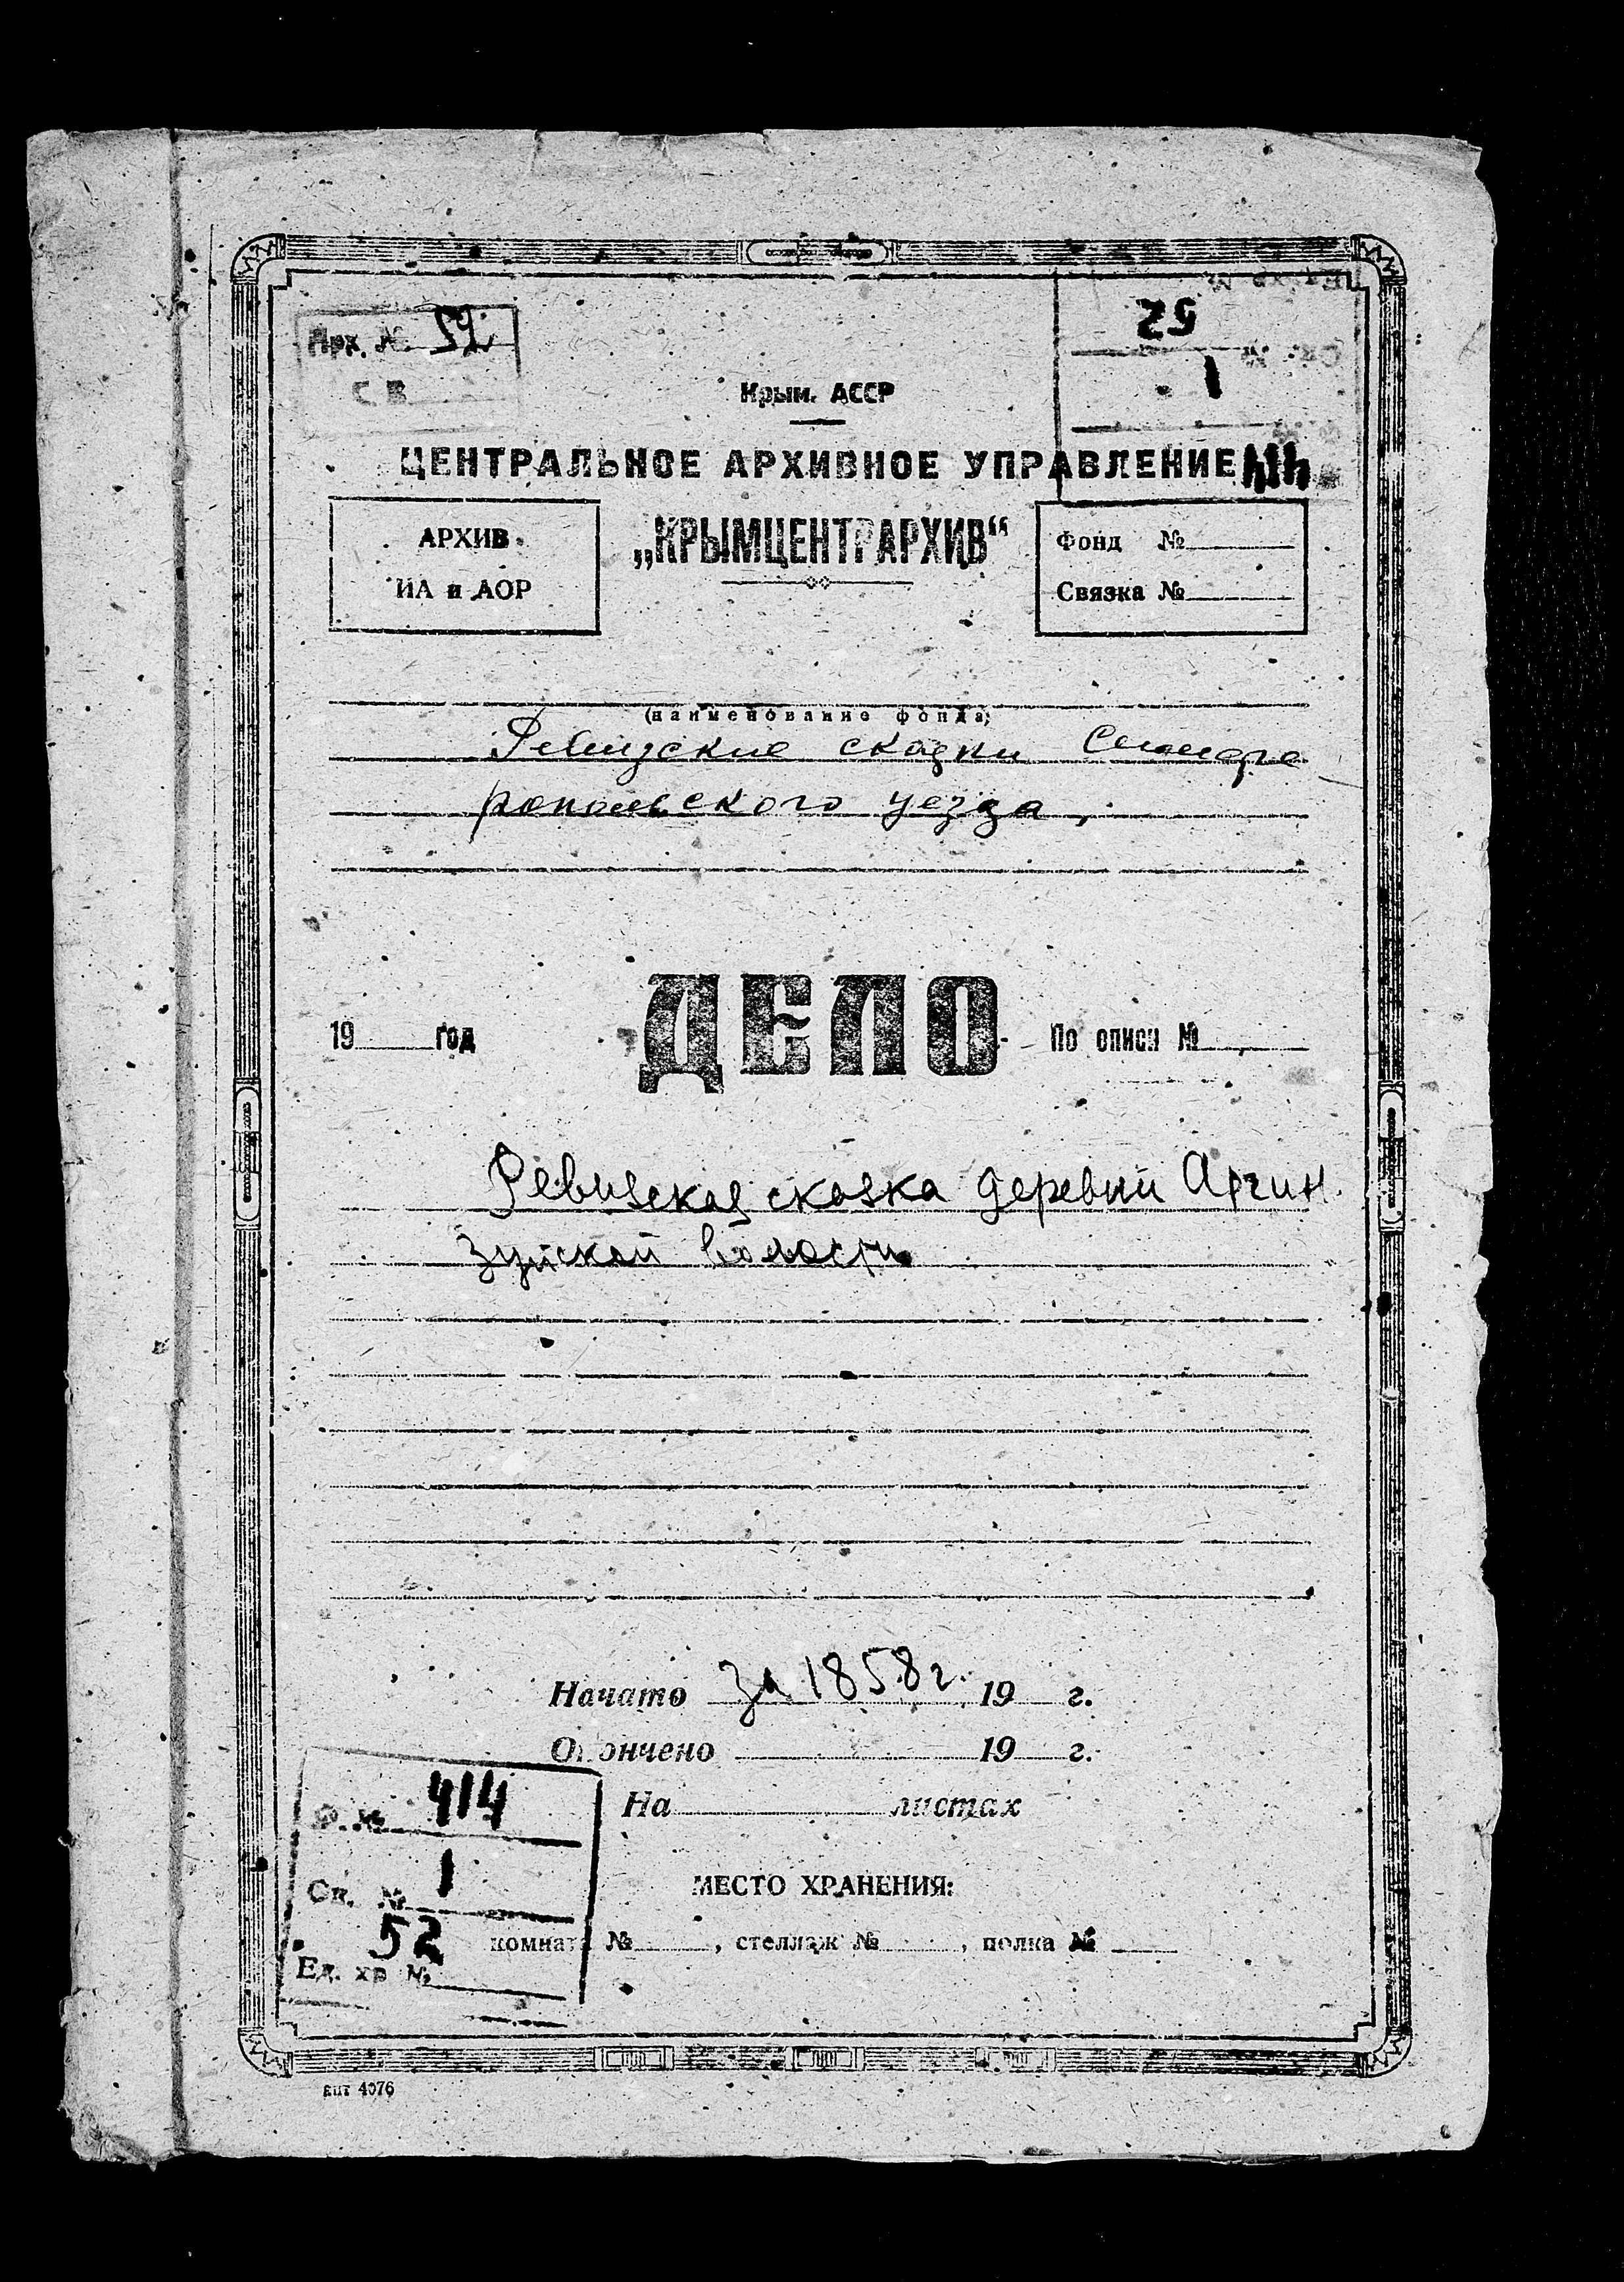 Арх. № 52
С В
52
1
414
Крым. АССР
ЦЕНТРАЛЬНОЕ АРХИВНОЕ УПРАВЛЕНИЕ
„КРЫМЦЕНТРАРХИВ“
АРХИВ
ИА и АОР
Фонд №
Связка №
(наименование фонда)
Ревизские сказки Симфе
ропольского уезда,
ДЕЛО
19 год
По описи №
Ревизская сказка деревни Аргин
Зуйской волости
Начато за 1858 г. 19 г.
Окончено 19 г.
На листах
Ф. № 414
Св. № 1
Ед. хр № 52
МЕСТО ХРАНЕНИЯ:
комната №, стеллаж №, полка №
4076